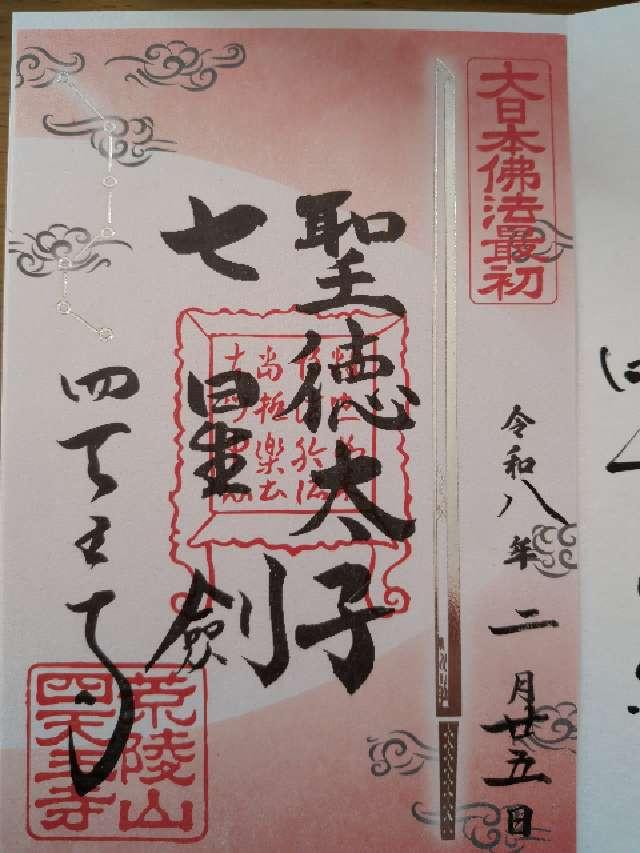 大日本佛法最初
令和八年二月廿五日
聖徳太子
七星剣
四天王寺
荒陵山
四天王寺